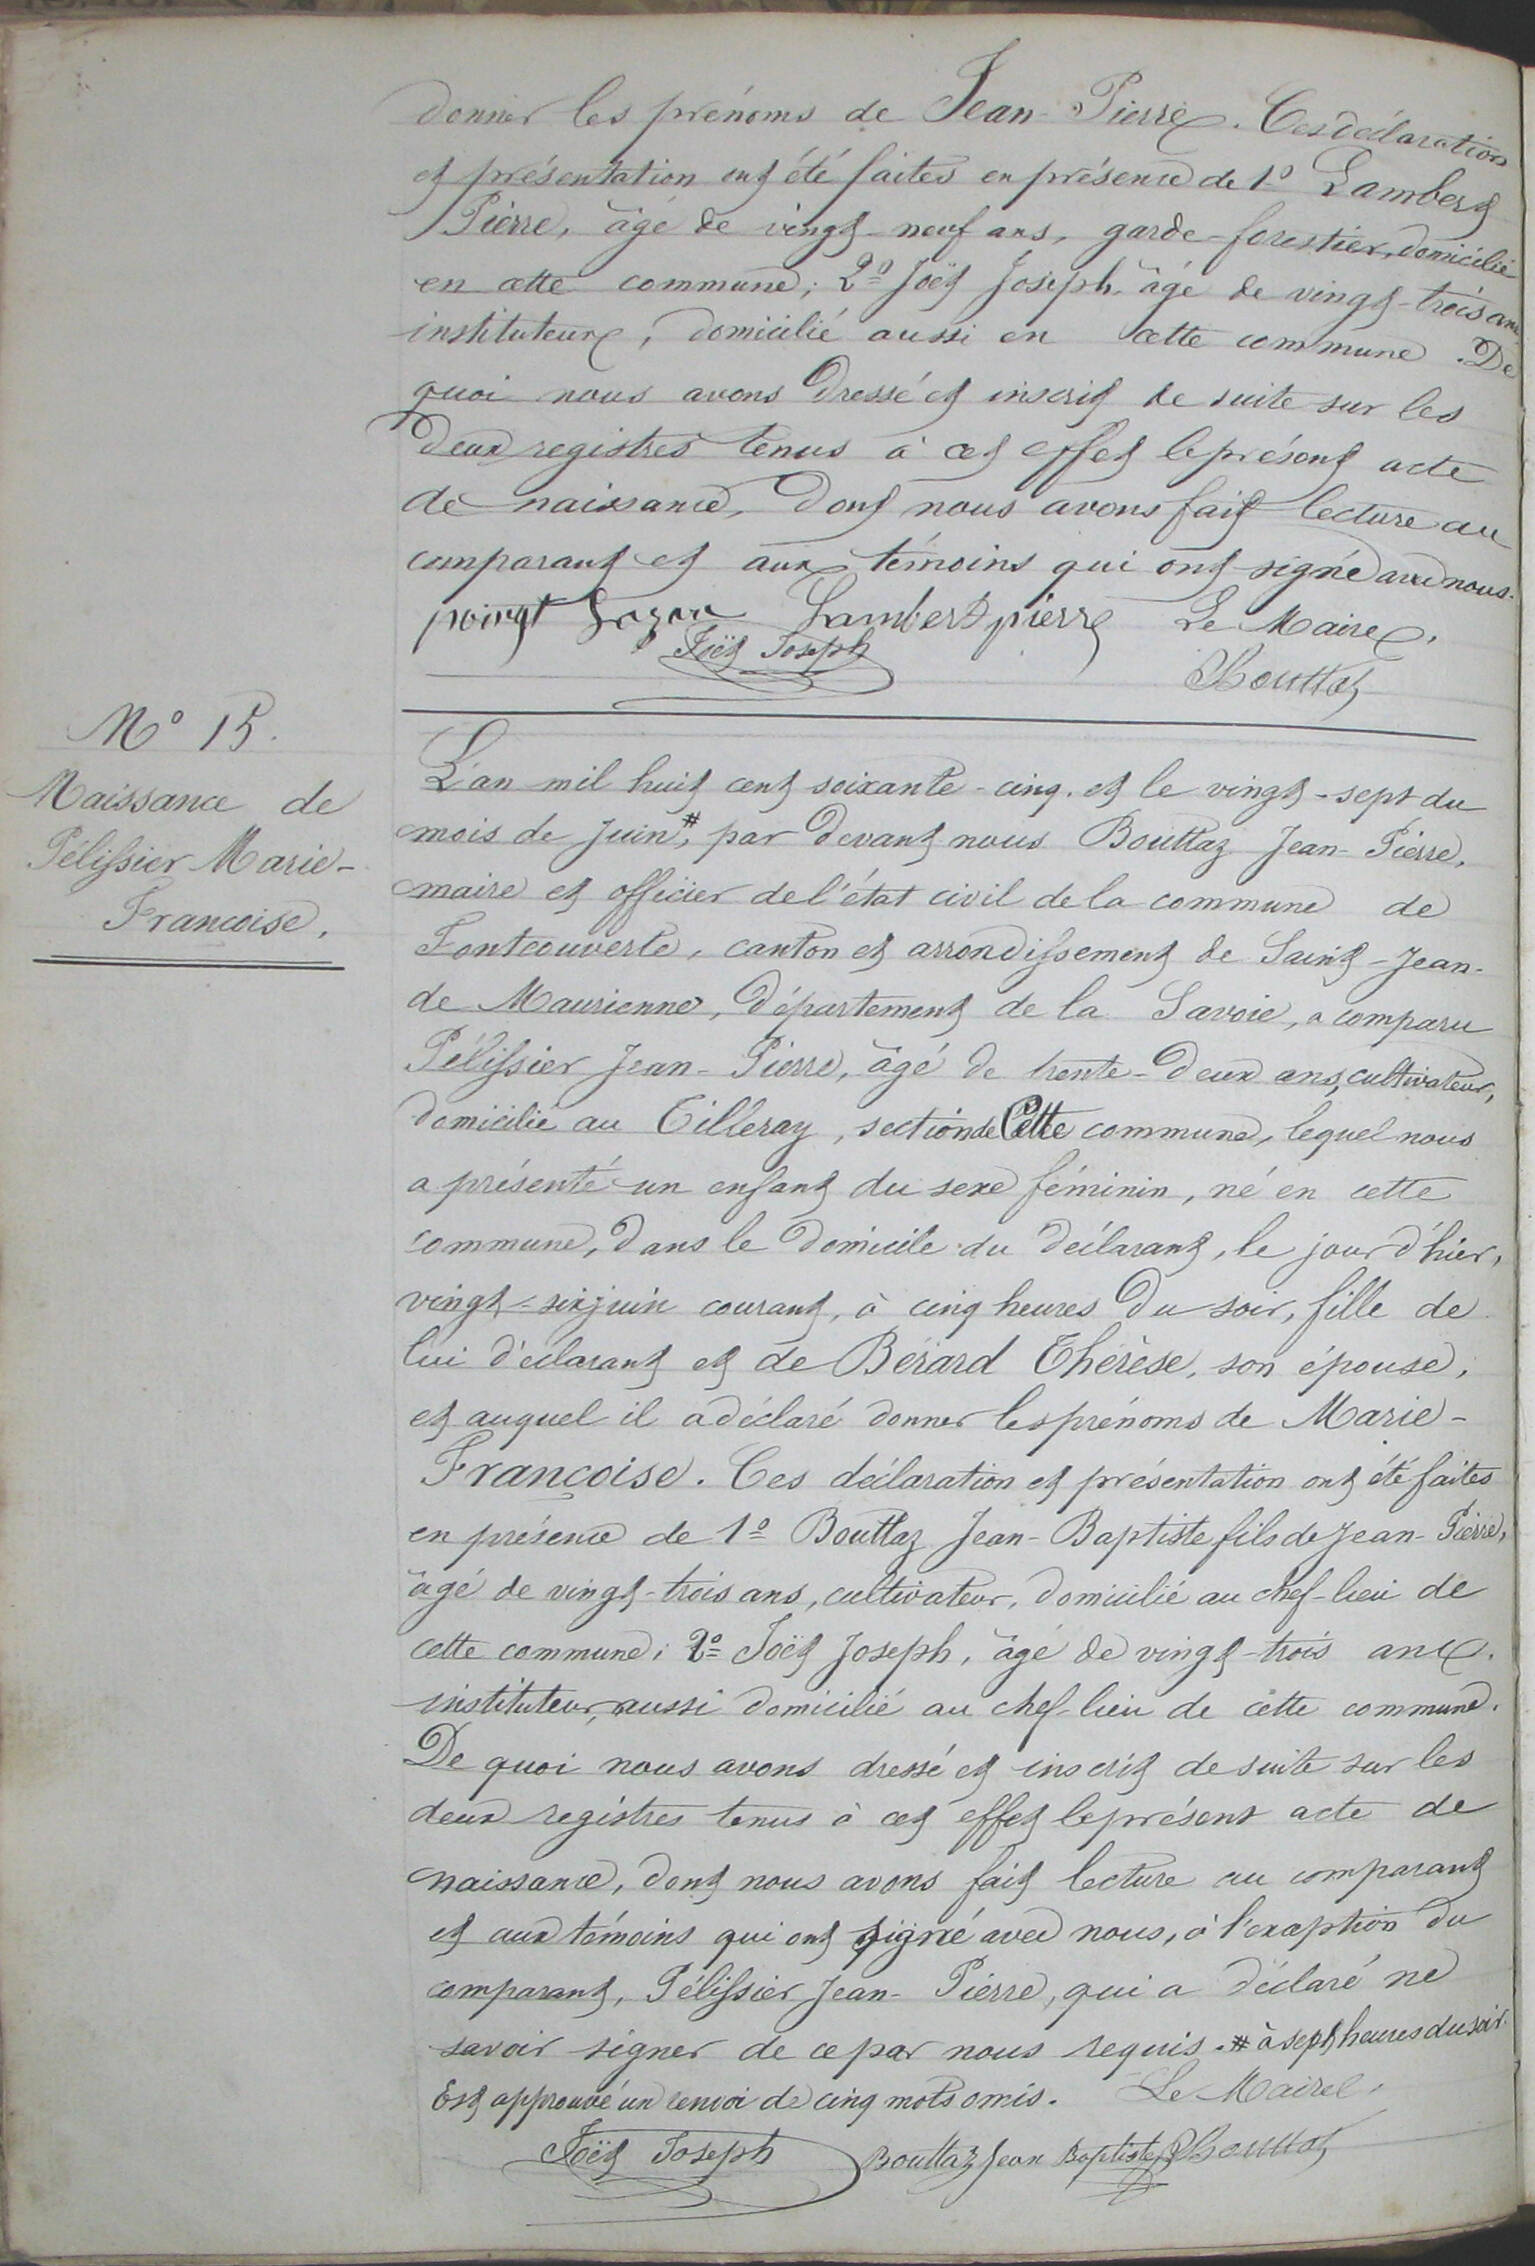 donner les prénoms de Jean-Pierre. Ces déclaration
et présentation ont été faites en présence de 1º Lambert
Pierre, âgé de vingt-neuf ans, garde-forestier, domicilié
en cette commune; 2º Joët Joseph, âgé de vingt-trois ans
instituteur, domicilié aussi en cette commune. De
quoi nous avons dressé et inscrit de suite sur les
deux registres tenus à cet effet le présent acte
de naissance, dont nous avons fait lecture au
comparant et aux témoins qui ont signé avec nous.
Lambert pierre Le Maire,
Joët Joseph
Bouttaz
Nº 15.
Naissance de
Pélissier Marie-
Francoise.
L'an mil huit cent soixante-cinq et le vingt-sept du
mois de Juin #, par devant nous Bouttaz Jean-Pierre,
maire et officier de l'état civil de la commune de
Fontcouverte, canton et arrondissement de Saint-Jean-
de Maurienne, département de la Savoie, a comparu
Pélissier Jean-Pierre, âgé de trente-deux ans, cultivateur,
domicilié au Tilleray, section de Cette commune, lequel nous
a présenté un enfant du sexe féminin, né en cette
commune, dans le domicile du déclarant, le jour d'hier,
vingt-six juin courant, à cinq heures du soir, fille de
lui déclarant et de Bérard Thérèse, son épouse,
et auquel il a déclaré donner les prénoms de Marie-
Françoise. Ces déclaration et présentation ont été faites
en présence de 1º Bouttaz Jean-Baptiste fils de Jean-Pierre,
âgé de vingt-trois ans, cultivateur, domicilié au chef-lieu de
cette commune; 2º Joët Joseph, âgé de vingt-trois ans,
instituteur, aussi domicilié au chef-lieu de cette commune.
De quoi nous avons dressé et inscrit de suite sur les
deux registres tenus à cet effet le présent acte de
naissance, dont nous avons fait lecture au comparant
et aux témoins qui ont signé avec nous, à l'exception du
comparant, Pélissier Jean-Pierre, qui a déclaré ne
savoir signer de ce par nous requis. # à sept heures du soir.
Est approuvé un renvoi de cinq mots omis. Le Maire,
Joët Joseph Bouttaz Jean Baptiste Bouttaz